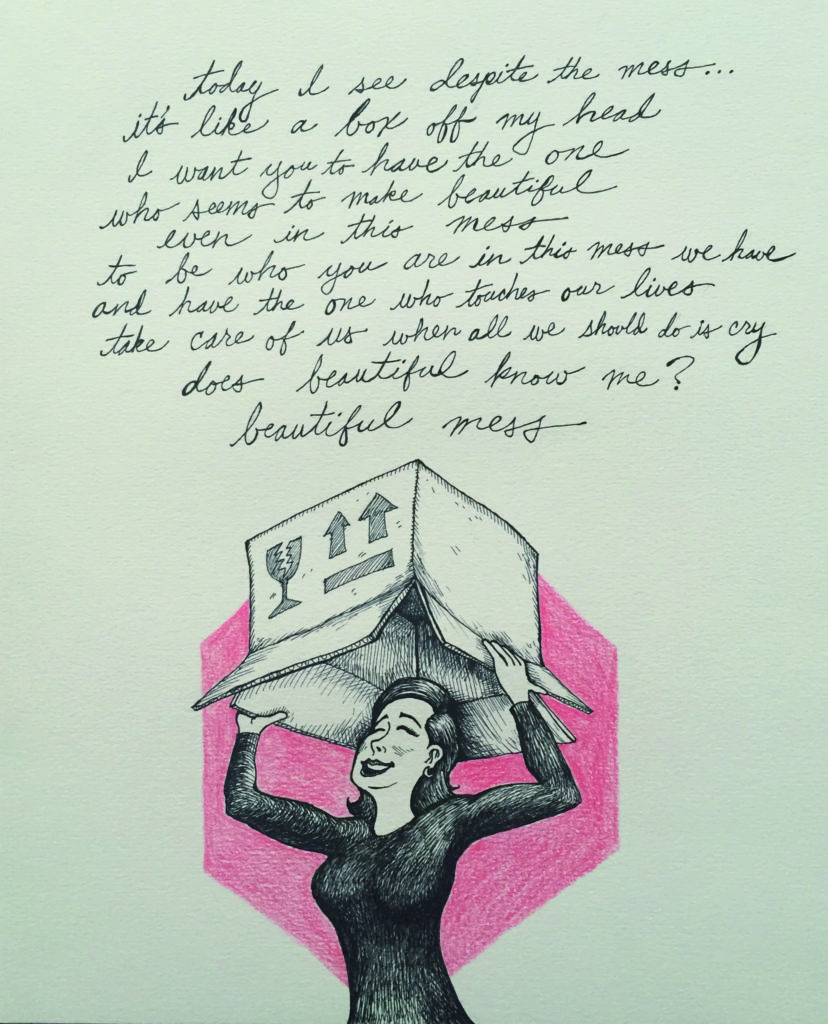 today I see despite the mess...
it's like a box off my head
I want you to have the one
who seems to make beautiful
even in this mess
to be who you are in this mess we have
and have the one who touches our lives
take care of us when all we should do is cry
does beautiful know me?
beautiful mess